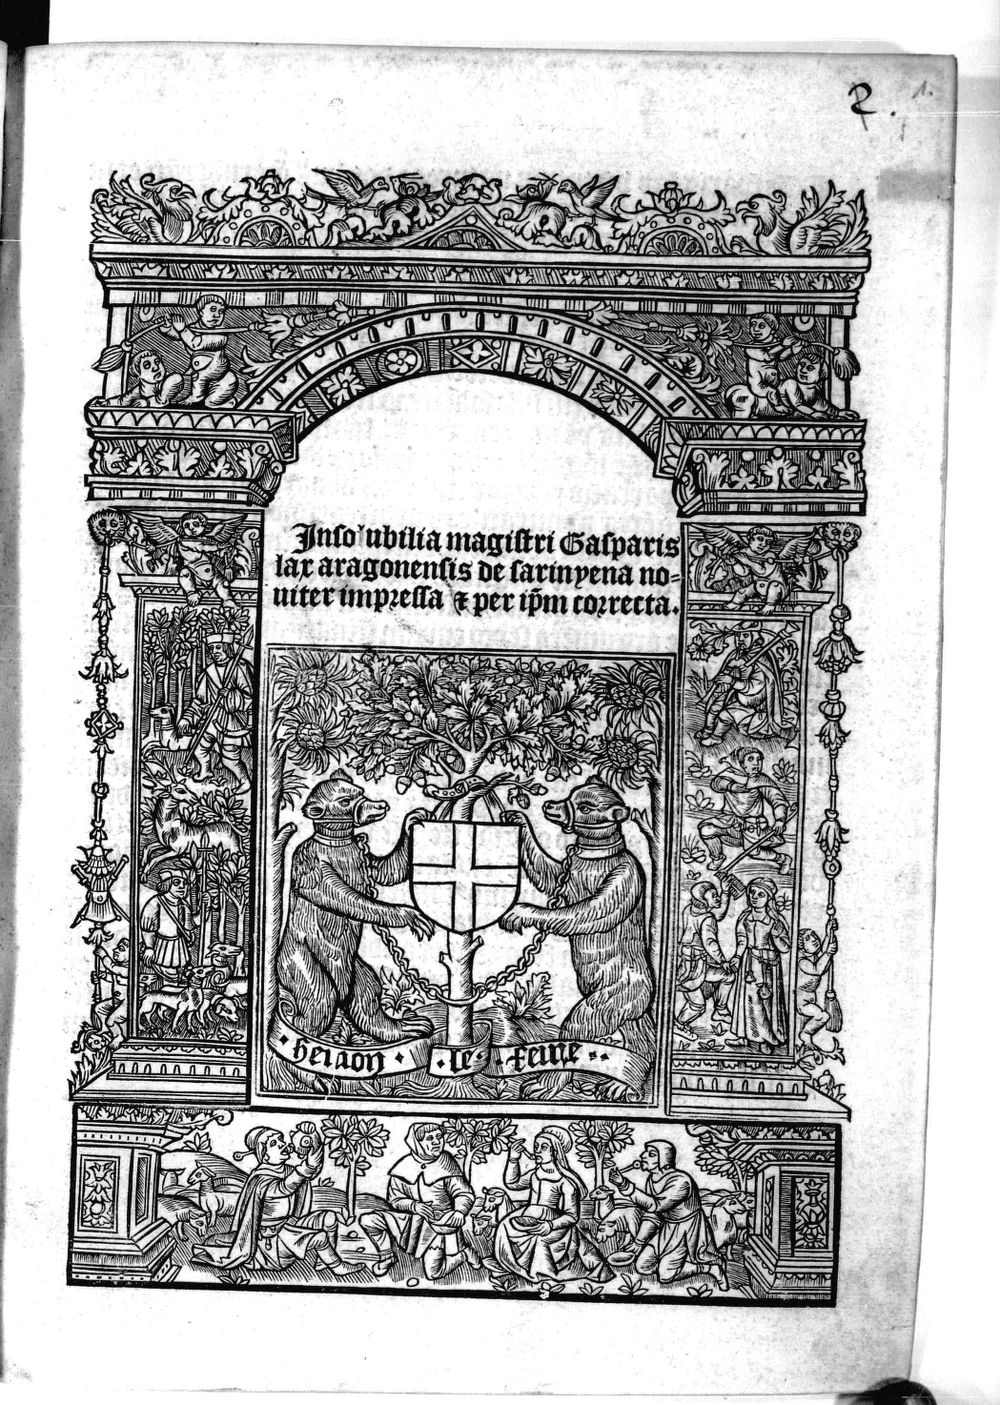 2.
1.
Insolubilia magistri Gasparis
lax aragonensis de sarinyena no=
uiter impressa ⁊ per ip̄m correcta.
· hemon · · le · · feure ··